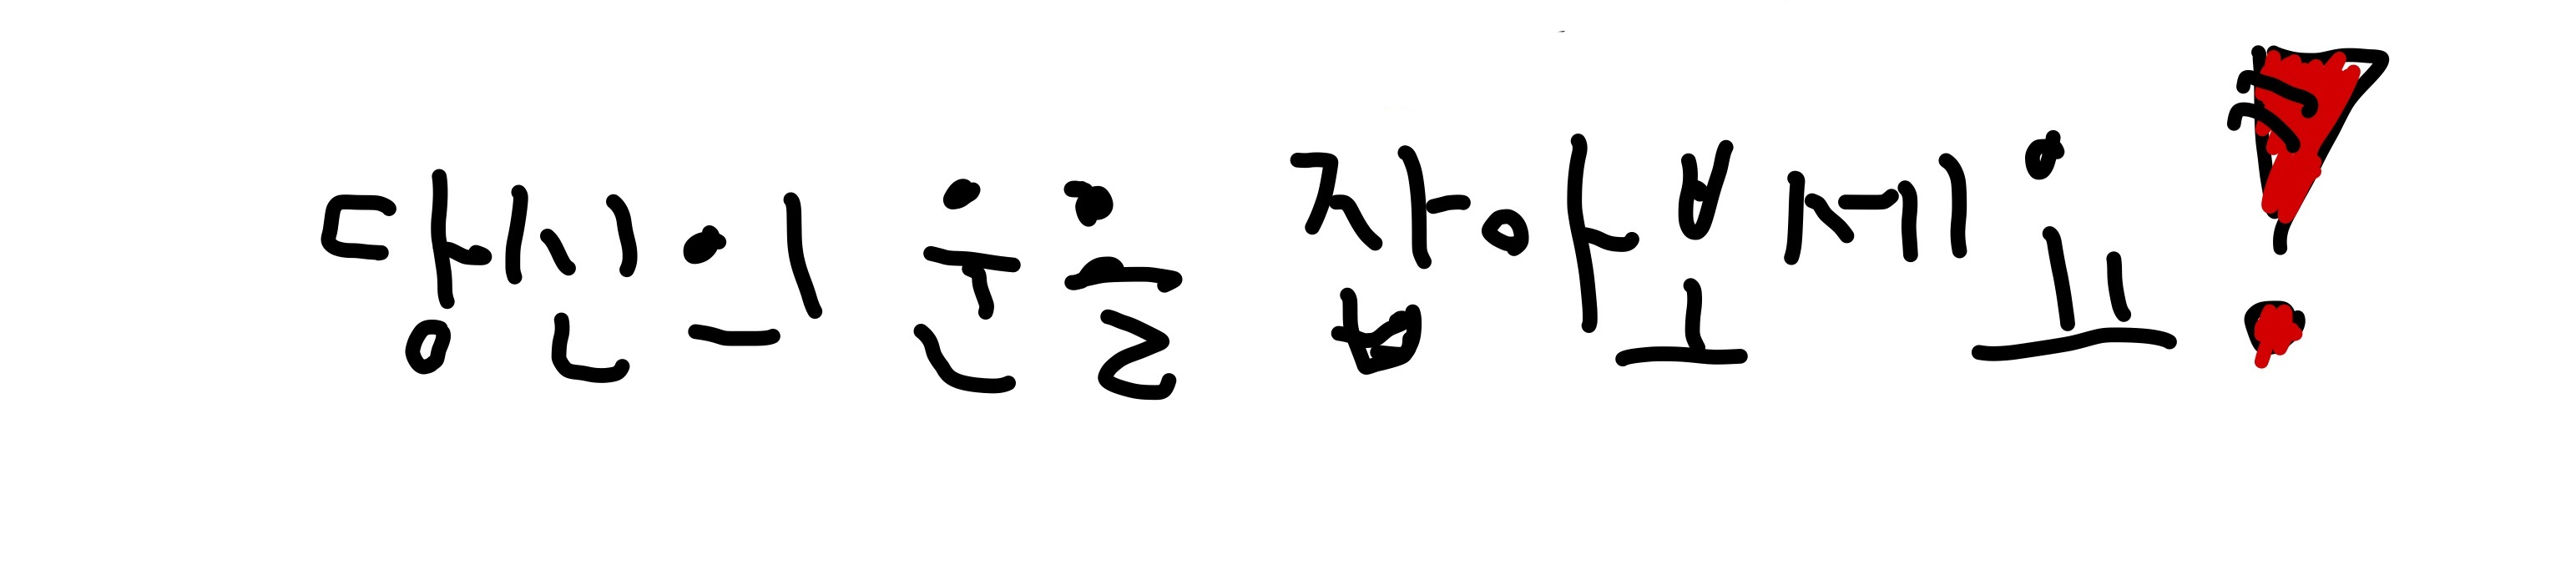 당신의 운을 잡아보세요!